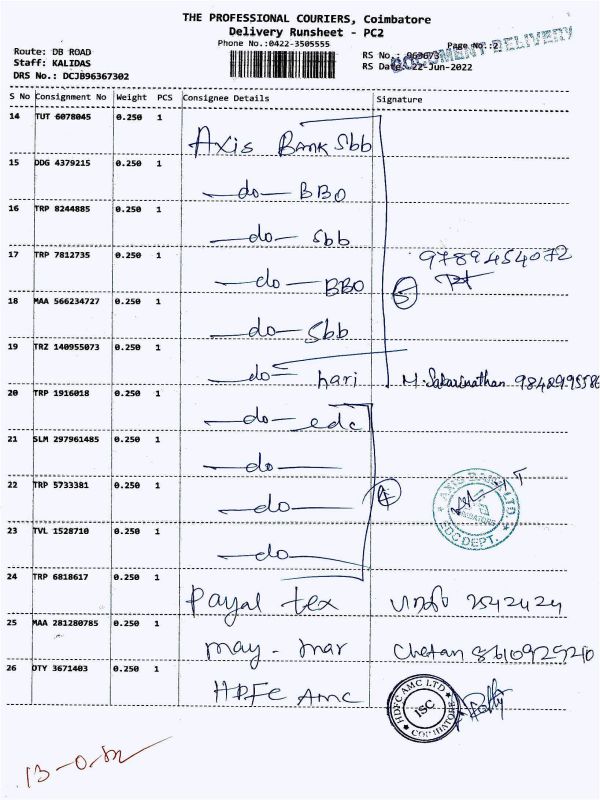 THE PROFESSIONAL COURIERS, Coimbatore
Delivery Runsheet - PC2
Phone No.:0422-3505555
Page No.:2
DOCUMENT DELIVERY
Route: DB ROAD
RS No.: 963673
Staff: KALIDAS
RS Date: 22-Jun-2022
DRS No.: DCJB96367302
S No Consignment No Weight PCS Consignee Details Signature
14 TUT 6078045 0.250 1 Axis Bank Sbb
15 DDG 4379215 0.250 1 —do— BBO
16 TRP 8244885 0.250 1 —do— Sbb
17 TRP 7812735 0.250 1 —do— BBO 9789454072
5
18 MAA 566234727 0.250 1 —do— Sbb
19 TRZ 140955073 0.250 1 —do— hari
20 TRP 1916018 0.250 1 —do— edc
21 SLM 297961485 0.250 1 —do—
22 TRP 5733381 0.250 1 —do— 4
AXIS BANK LTD.
EDC DEPT.
23 TVL 1528710 0.250 1 —do—
24 TRP 6818617 0.250 1 Payal tex 2542424
25 MAA 281280785 0.250 1 may - mar Chetan 8610929210
26 OTY 3671403 0.250 1 HDFC AMC
HDFC AMC LTD
ISC
COIMBATORE